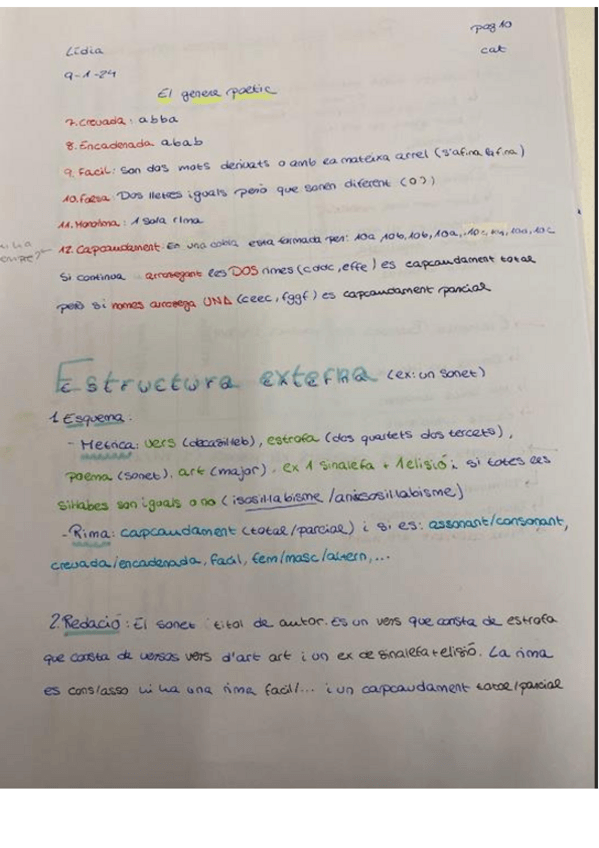 pag 10
Lídia
cat
9-1-24
El genere poetic
7. Creuada: abba
8. Encadenada abab
9. Facil: Son das mots derivats o amb ea mateixa arrel (s'afina la fina)
10. Falsa Dos lletres iguals però que sonen diferent
11. Monorima: 1 sola rima
12. Capcaudament: En una cobla esta formada per: 10a, 10b, 10b, 10a, 10c,
Si continua arrossegant les DOS rimes (cddc, effe) es capcaudament total
però si nomes arrossega UNA (ceec, fggf) es capcaudament parcial
Estructura externa (ex: un sonet)
1 Esquema:
- Metrica: vers (decasil·leb), estrofa (dos quartets dos tercets),
poema (sonet), art (major). ex 1 sinalefa + 1 elisió i si totes les
sil·labes son iguals o no (isosil·labisme / anisosil·labisme)
- Rima: capcaudament (total/parcial) i si es: assonant/consonant,
creuada/encadenada, facil, fem/masc/altern, ...
2. Redació: El sonet titol de autor. Es un vers que consta de estrofa
que consta de versos vers d'art art i un ex de sinalefa + elisió. La rima
es cons/asso hi ha una rima facil/... i un capcaudament total/parcial